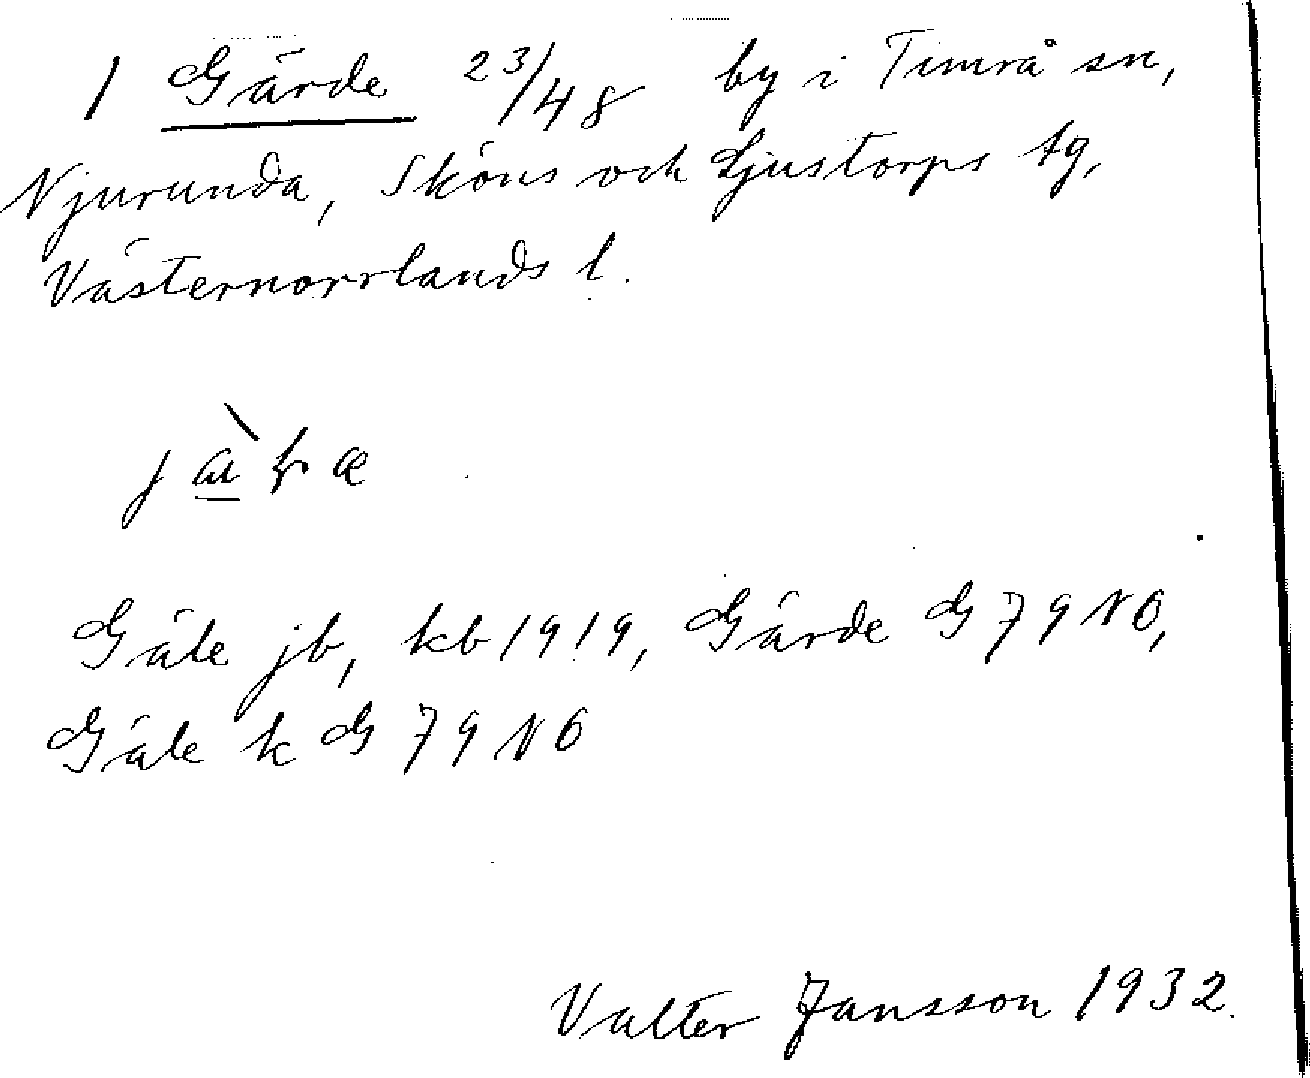 1 Gärde 23/48 by i Timrå sn,
Njurunda, Sköns och Ljustorps tg,
Västernorrlands l.
Gäle jb, kb 1919, Gärde G 79 NO,
Gäle k G 79 NO
Valter Jansson 1932.